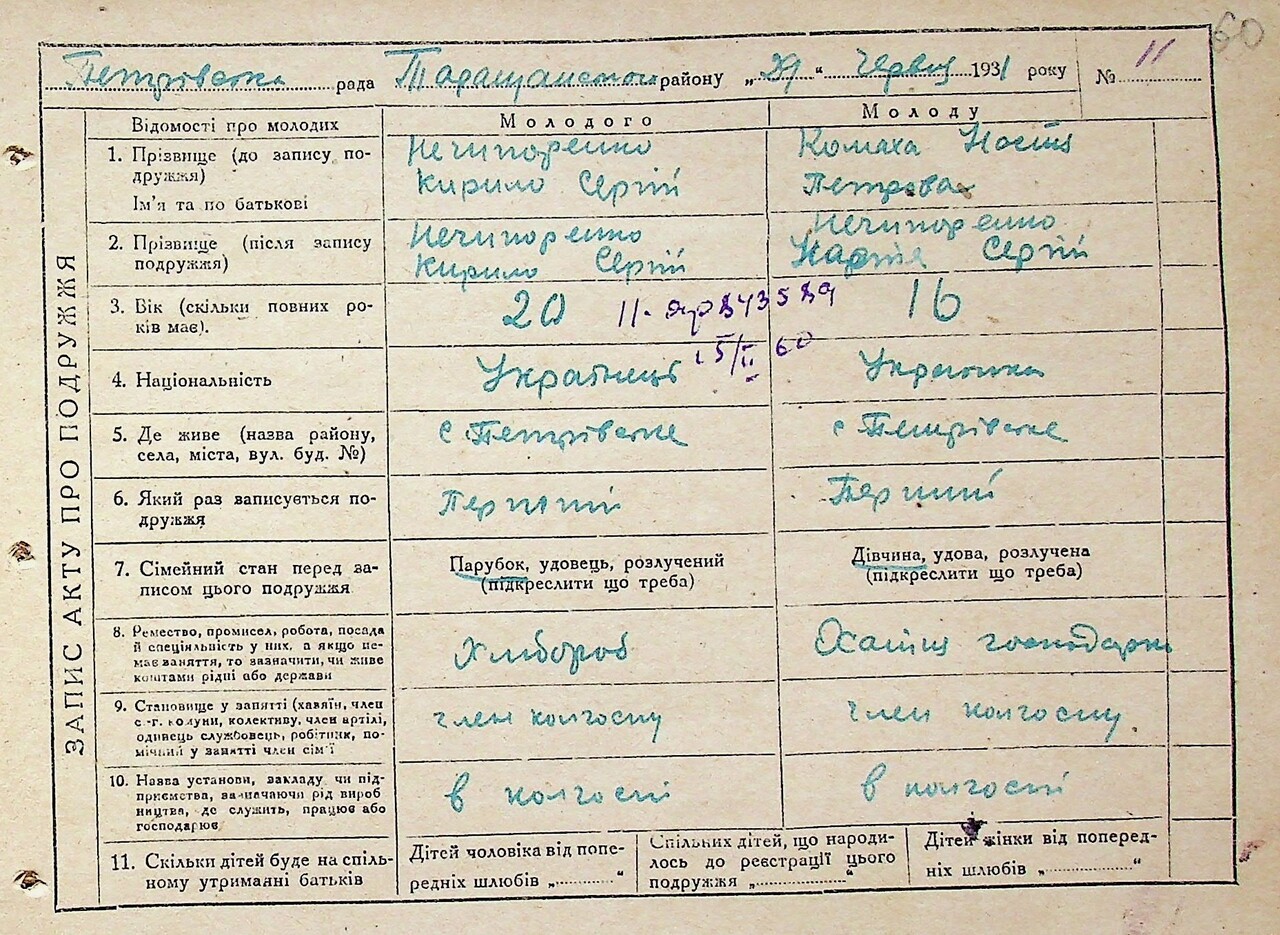 60
Петрівська рада Таращанського району „29“ Червня 1931 року № 11
ЗАПИС АКТУ ПРО ПОДРУЖЖЯ
Відомості про молодих
Молодого
Молоду
1. Прізвище (до запису по-
дружжя)
Ім'я та по батькові
Нечипоренко
Кирило Сергій
Комаха Настя
Петрова
2. Прізвище (після запису
подружжя)
Нечипоренко
Кирило Сергій
Нечипоренко
Сергій
3. Вік (скільки повних ро-
ків має).
20
16
15/II 60
4. Національність
Українець
Українка
5. Де живе (назва району,
села, міста, вул. буд. №)
с Петрівське
с Петрівське
6. Який раз записується по-
дружжя
Перший
Перший
7. Сімейний стан перед за-
писом цього подружжя
Парубок, удовець, розлучений
(підкреслити що треба)
Дівчина, удова, розлучена
(підкреслити що треба)
8. Ремество, промисел, робота, посада
й спеціяльність у них, а якщо не-
має заняття, то зазначити, чи живе
коштами рідні або держави
Хлибороб
Хатня господарка
9. Становище у занятті (хазяїн, член
с.-г. комуни, колективу, член артілі,
одинець службовець, робітник, по-
мічний у занятті член сім'ї
член колгоспу
член колгоспу
10. Назва установи, закладу чи під-
приємства, зазначаючи рід вироб
ництва, де служить, працює або
господарює
в колгоспі
в колгоспі
11. Скільки дітей буде на спіль-
ному утриманні батьків
Дітей чоловіка від попе-
редніх шлюбів „............“
Спільних дітей, що народи-
лось до реєстрації цього
подружжя „..................“
Дітей жінки від поперед-
ніх шлюбів „..................“